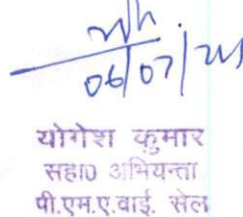 06/07/21
योगेश कुमार
सहा0 अभियन्ता
पी.एम.ए.वाई. सेल